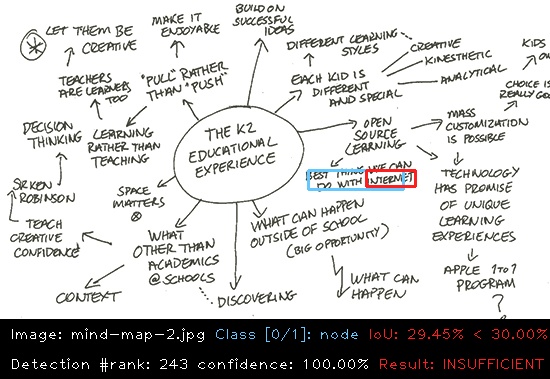 LET THEM BE
CREATIVE
MAKE IT
ENJOYABLE
BUILD ON
SUCCESSFUL
IDEAS
DIFFERENT LEARNING
STYLES
CREATIVE
KINESTHETIC
ANALYTICAL
KIDS
ON
TEACHERS
ARE LEARNERS
TOO
"PULL" RATHER
THAN "PUSH"
EACH KID IS
DIFFERENT
AND SPECIAL
CHOICE IS
REALLY GO
DECISION
THINKING
LEARNING
RATHER THAN
TEACHING
THE K2
EDUCATIONAL
EXPERIENCE
OPEN
SOURCE
LEARNING
MASS
CUSTOMIZATION
IS POSSIBLE
BEST THING WE CAN
DO WITH INTERNET
SIR KEN
ROBINSON
SPACE
MATTERS
TECHNOLOGY
HAS PROMISE
OF UNIQUE
LEARNING
EXPERIENCES
TEACH
CREATIVE
CONFIDENCE
WHAT
OTHER THAN
ACADEMICS
@SCHOOLS
WHAT CAN HAPPEN
OUTSIDE OF SCHOOL
(BIG OPPORTUNITY)
APPLE 1to1
PROGRAM
?
CONTEXT
DISCOVERING
WHAT CAN
HAPPEN
Image: mind-map-2.jpg Class [0/1]: node IoU: 29.45% < 30.00%
Detection #rank: 243 confidence: 100.00% Result: INSUFFICIENT